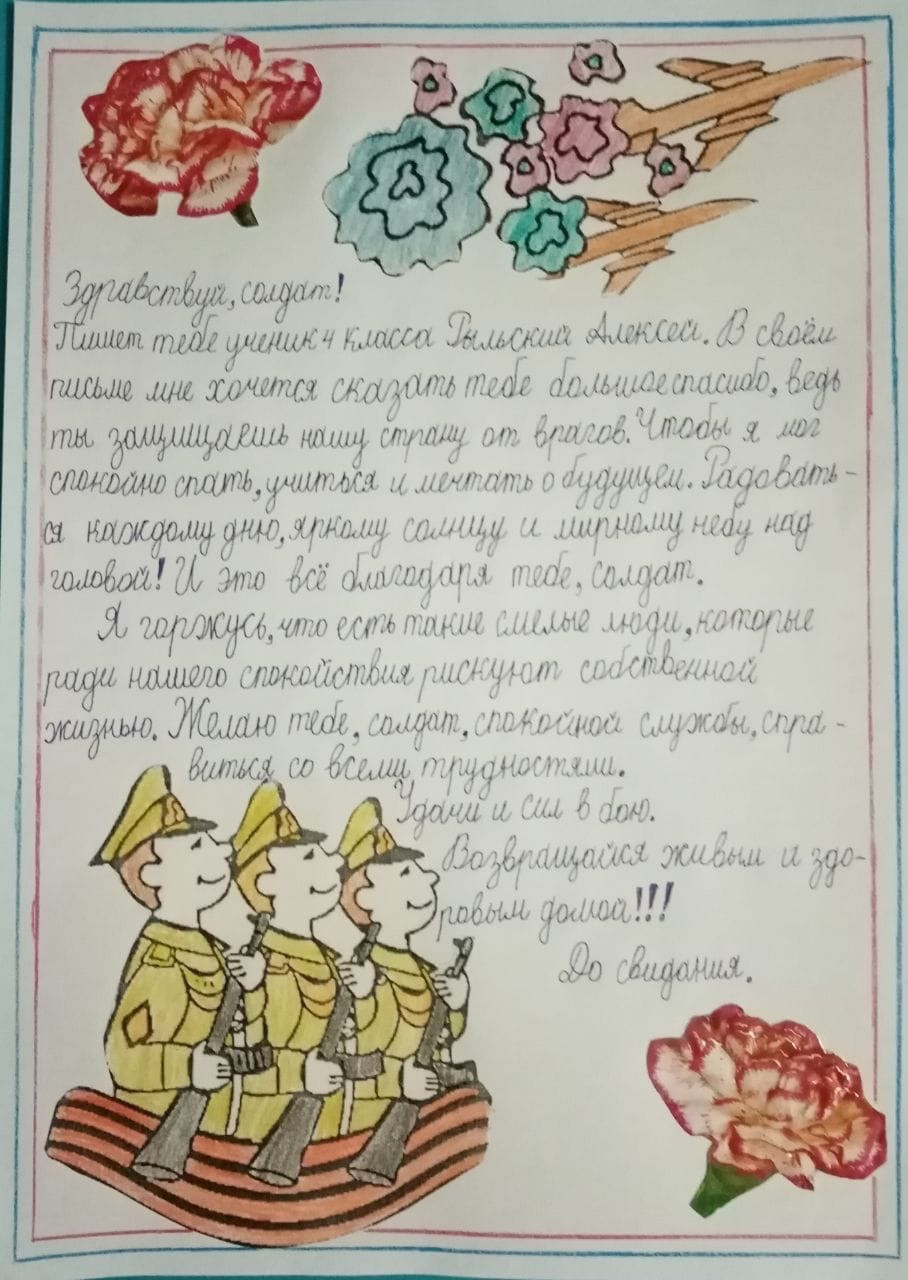 Здравствуй, солдат!
Пишет тебе ученик 4 класса Рыльский Алексей. В своём
письме мне хочется сказать тебе большое спасибо, ведь
ты защищаешь нашу страну от врагов. Чтобы я мог
спокойно спать, учиться и мечтать о будущем. Радовать-
ся каждому дню, яркому солнцу и мирному небу над
головой! И это всё благодаря тебе, солдат.
Я горжусь, что есть такие смелые люди, которые
ради нашего спокойствия рискуют собственной
жизнью. Желаю тебе, солдат, спокойной службы, спра-
виться со всеми трудностями.
Удачи и сил в бою.
Возвращайся живым и здо-
ровым домой!!!
До свидания.